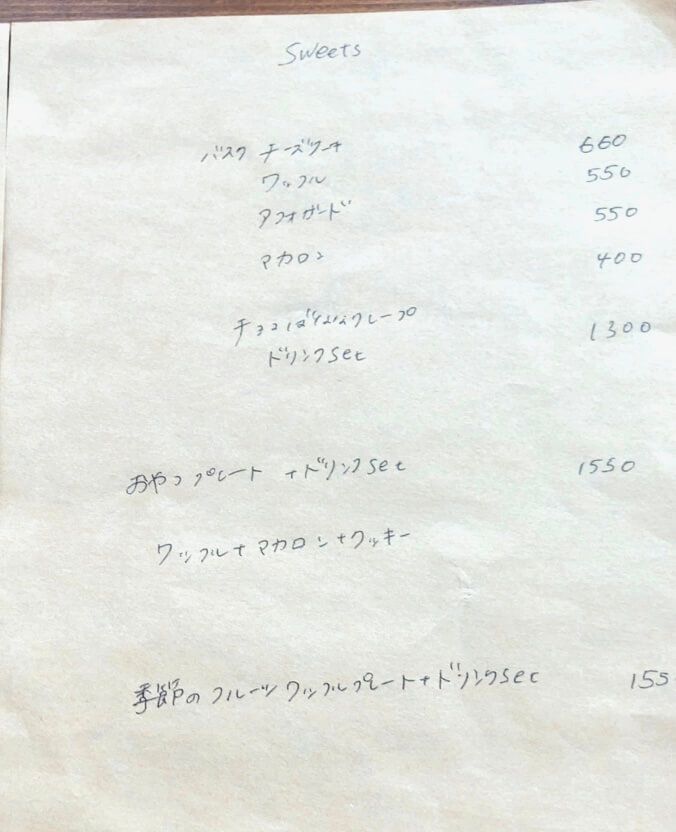 Sweets
バスク チーズケーキ 660
ワッフル 550
アフォガード 550
マカロン 400
チョコばななクレープ 1300
ドリンクset
おやつプレート +ドリンクset 1550
ワッフル+マカロン+クッキー
季節のフルーツワッフルプレート+ドリンクset 155